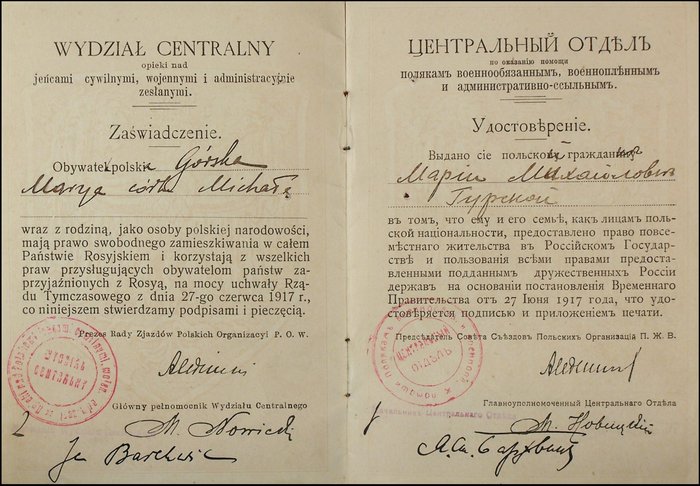 WYDZIAŁ CENTRALNY
opieki nad
jeńcami cywilnymi, wojennymi i administracyjnie
zesłanymi.
Zaświadczenie.
Obywatel polski Górska
Marya córka Michała
wraz z rodziną, jako osoby polskiej narodowości,
mają prawo swobodnego zamieszkiwania w całem
Państwie Rosyjskiem i korzystają z wszelkich
praw przysługujących obywatelom państw za-
przyjaźnionych z Rosyą, na mocy uchwały Rzą-
du Tymczasowego z dnia 27-go czerwca 1917 r.,
co niniejszem stwierdzamy podpisami i pieczęcią.
Prezes Rady Zjazdów Polskich Organizacyi P. O. W.
WYDZIAŁ
CENTRALNY
Główny pełnomocnik Wydziału Centralnego
M. Nowicki
ЦЕНТРАЛЬНЫЙ ОТДѢЛЪ
по оказанію помощи
полякамъ военнообязаннымъ, военноплѣннымъ
и административно-ссыльнымъ.
Удостовѣреніе.
Выдано сіе польской гражданкѣ
Маріи Михайловнѣ
Гурской
въ томъ, что ему и его семьѣ, какъ лицамъ поль-
ской національности, предоставлено право повсе-
мѣстнаго жительства въ Россійскомъ Государст-
вѣ и пользованія всѣми правами предоста-
вленными подданнымъ дружественныхъ Россіи
державъ на основаніи постановленія Временнаго
Правительства отъ 27 Іюня 1917 года, что удо-
стовѣряется подписью и приложеніемъ печати.
Предсѣдатель Совѣта Съѣздовъ Польскихъ Организацій П. Ж. В.
ЦЕНТРАЛЬНЫЙ
ОТДѢЛЪ
Главноуполномоченный Центральнаго Отдѣла
Начальникъ Центральнаго Отдѣла
М. Новицкій